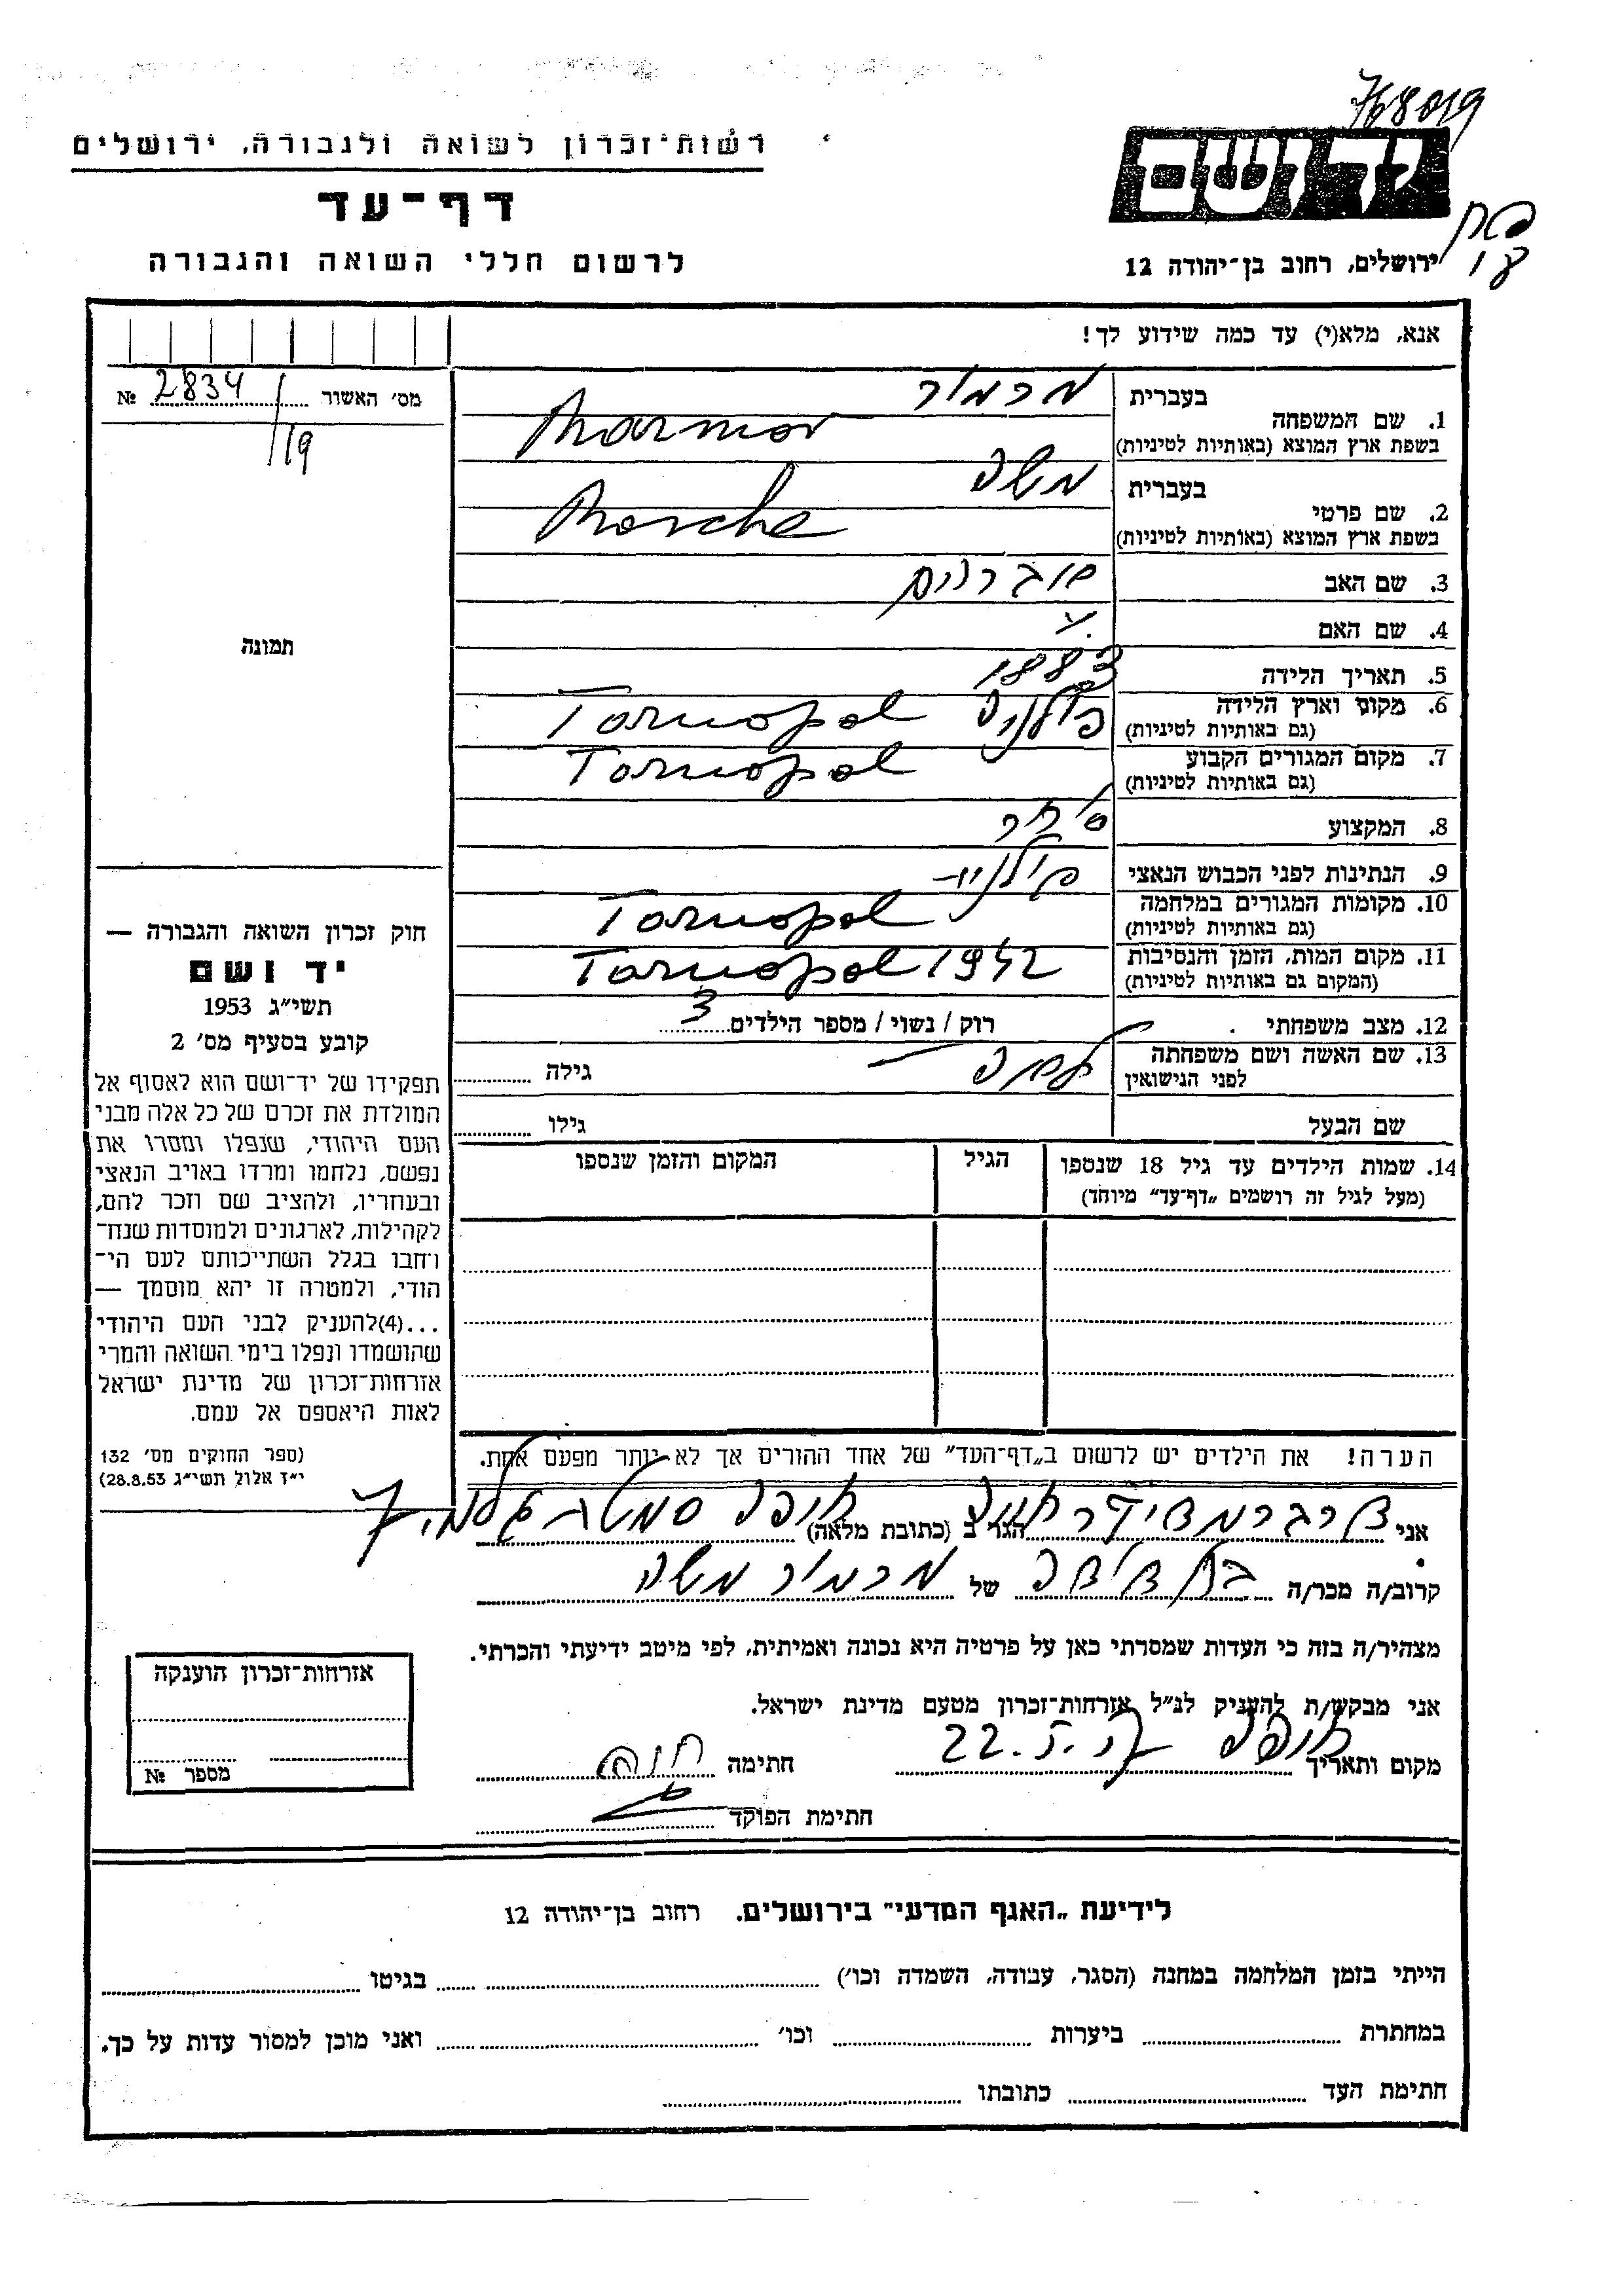 768019
רשות־זכרון לשואה ולגבורה, ירושלים
יד ושם
דף־עד
לרשום חללי השואה והגבורה
ירושלים, רחוב בן־יהודה 12
אנא, מלא(י) עד כמה שידוע לך!
מס׳ האשור 2834 №
/19
1. שם המשפחה
בעברית מרמור
בשפת ארץ המוצא (באותיות לטיניות) Marmor
2. שם פרטי
בעברית משה
בשפת ארץ המוצא (באותיות לטיניות) Mosche
3. שם האב
4. שם האם
5. תאריך הלידה 1883
6. מקום וארץ הלידה (גם באותיות לטיניות) פולניה Tarnopol
7. מקום המגורים הקבוע (גם באותיות לטיניות) Tarnopol
8. המקצוע סוחר
9. הנתינות לפני הכבוש הנאצי
10. מקומות המגורים במלחמה (גם באותיות לטיניות) Tarnopol
11. מקום המות, הזמן והנסיבות (המקום גם באותיות לטיניות) Tarnopol 1942
12. מצב משפחתי רוק / נשוי / מספר הילדים 3
13. שם האשה ושם משפחתה לפני הנישואין גילה
שם הבעל גילו
14. שמות הילדים עד גיל 18 שנספו
(מעל לגיל זה רושמים „דף־עד״ מיוחד)
הגיל
המקום והזמן שנספו
הערה! את הילדים יש לרשום ב„דף־העד״ של אחד ההורים אך לא יותר מפעם אחת.
תמונה
חוק זכרון השואה והגבורה —
יד ושם
תשי״ג 1953
קובע בסעיף מס׳ 2
תפקידו של יד־ושם הוא לאסוף אל
המולדת את זכרם של כל אלה מבני
העם היהודי, שנפלו ומסרו את
נפשם, נלחמו ומרדו באויב הנאצי
ובעוזריו, ולהציב שם וזכר להם,
לקהילות, לארגונים ולמוסדות שנח־
רחבו בגלל השתייכותם לעם הי־
הודי, ולמטרה זו יהא מוסמך —
...(4) להעניק לבני העם היהודי
שהושמדו ונפלו בימי השואה והמרי
אזרחות־זכרון של מדינת ישראל
לאות היאספם אל עמם.
(ספר החוקים מס׳ 132
י״ד אלול תשי״ג 28.8.53)
אני הגר ב (כתובת מלאה) חיפה
קרוב/ה מכר/ה בת דודה של מרמור משה
מצהיר/ה בזה כי העדות שמסרתי כאן על פרטיה היא נכונה ואמיתית, לפי מיטב ידיעתי והכרתי.
אני מבקש/ת להעניק לנ״ל אזרחות־זכרון מטעם מדינת ישראל.
מקום ותאריך חיפה 22.5. חתימה חוה
חתימת הפוקד
אזרחות־זכרון הוענקה
מספר №
לידיעת „האגף המדעי״ בירושלים. רחוב בן־יהודה 12
הייתי בזמן המלחמה במחנה (הסגר, עבודה, השמדה וכו׳) בגיטו
במחתרת ביערות וכו׳ ואני מוכן למסור עדות על כך.
חתימת העד כתובתו